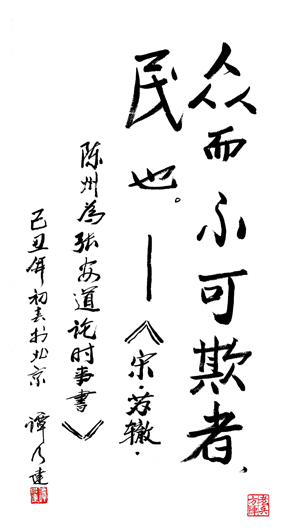 众而不可欺者、
民也。——《宋·苏辙·
陈州为张安道论时事书》
己丑年初春于北京 谭乃建